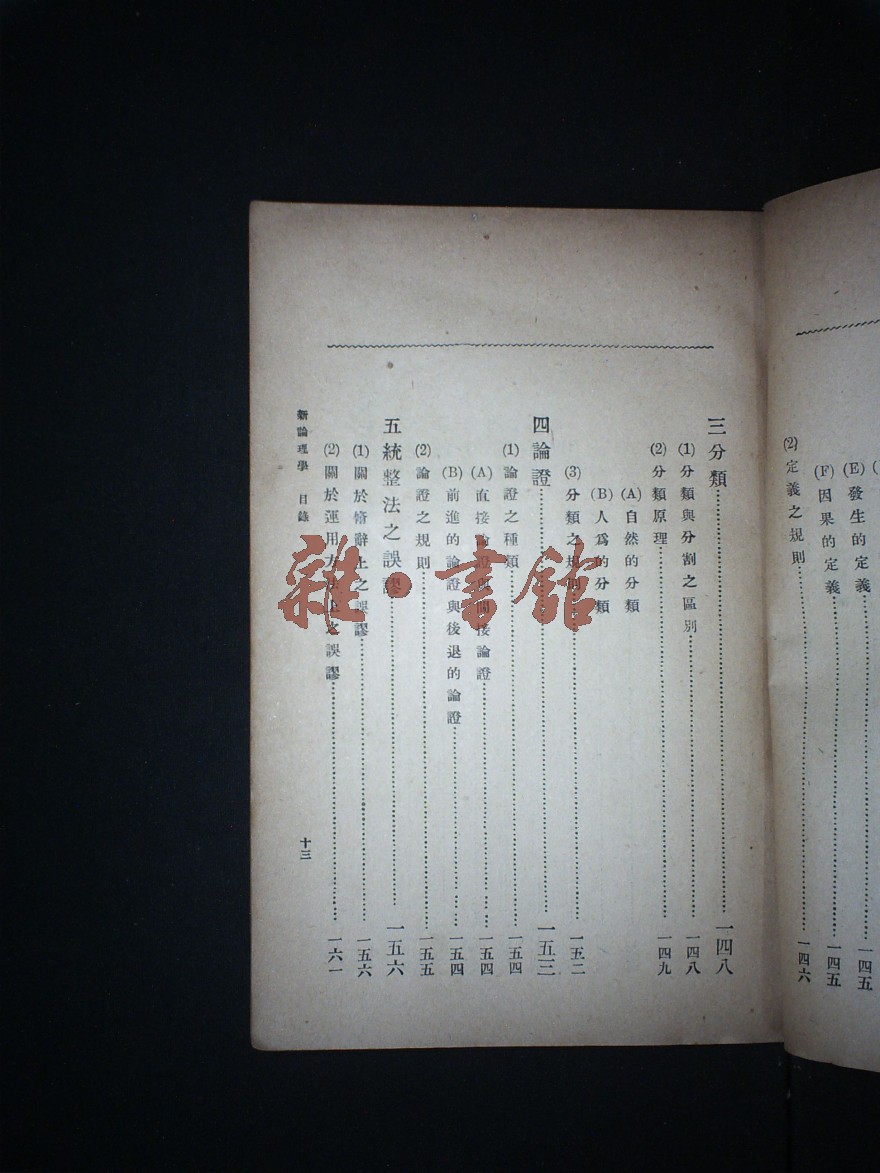 (E)發生的定義……一四五
(F)因果的定義……一四五
(2)定義之規則……一四六
三分類……一四八
(1)分類與分割之區別……一四八
(2)分類原理……一四九
(A)自然的分類
(B)人爲的分類
(3)分類之規則……一五二
四論證……一五三
(1)論證之種類……一五四
(A)直接論證與間接論證……一五四
(B)前進的論證與後退的論證……一五四
(2)論證之規則……一五五
五統整法之誤謬……一五六
(1)關於脩辭上之誤謬……一五六
(2)關於運用方法上之誤謬……一六一
新論理學 目錄 十三
雜·書館